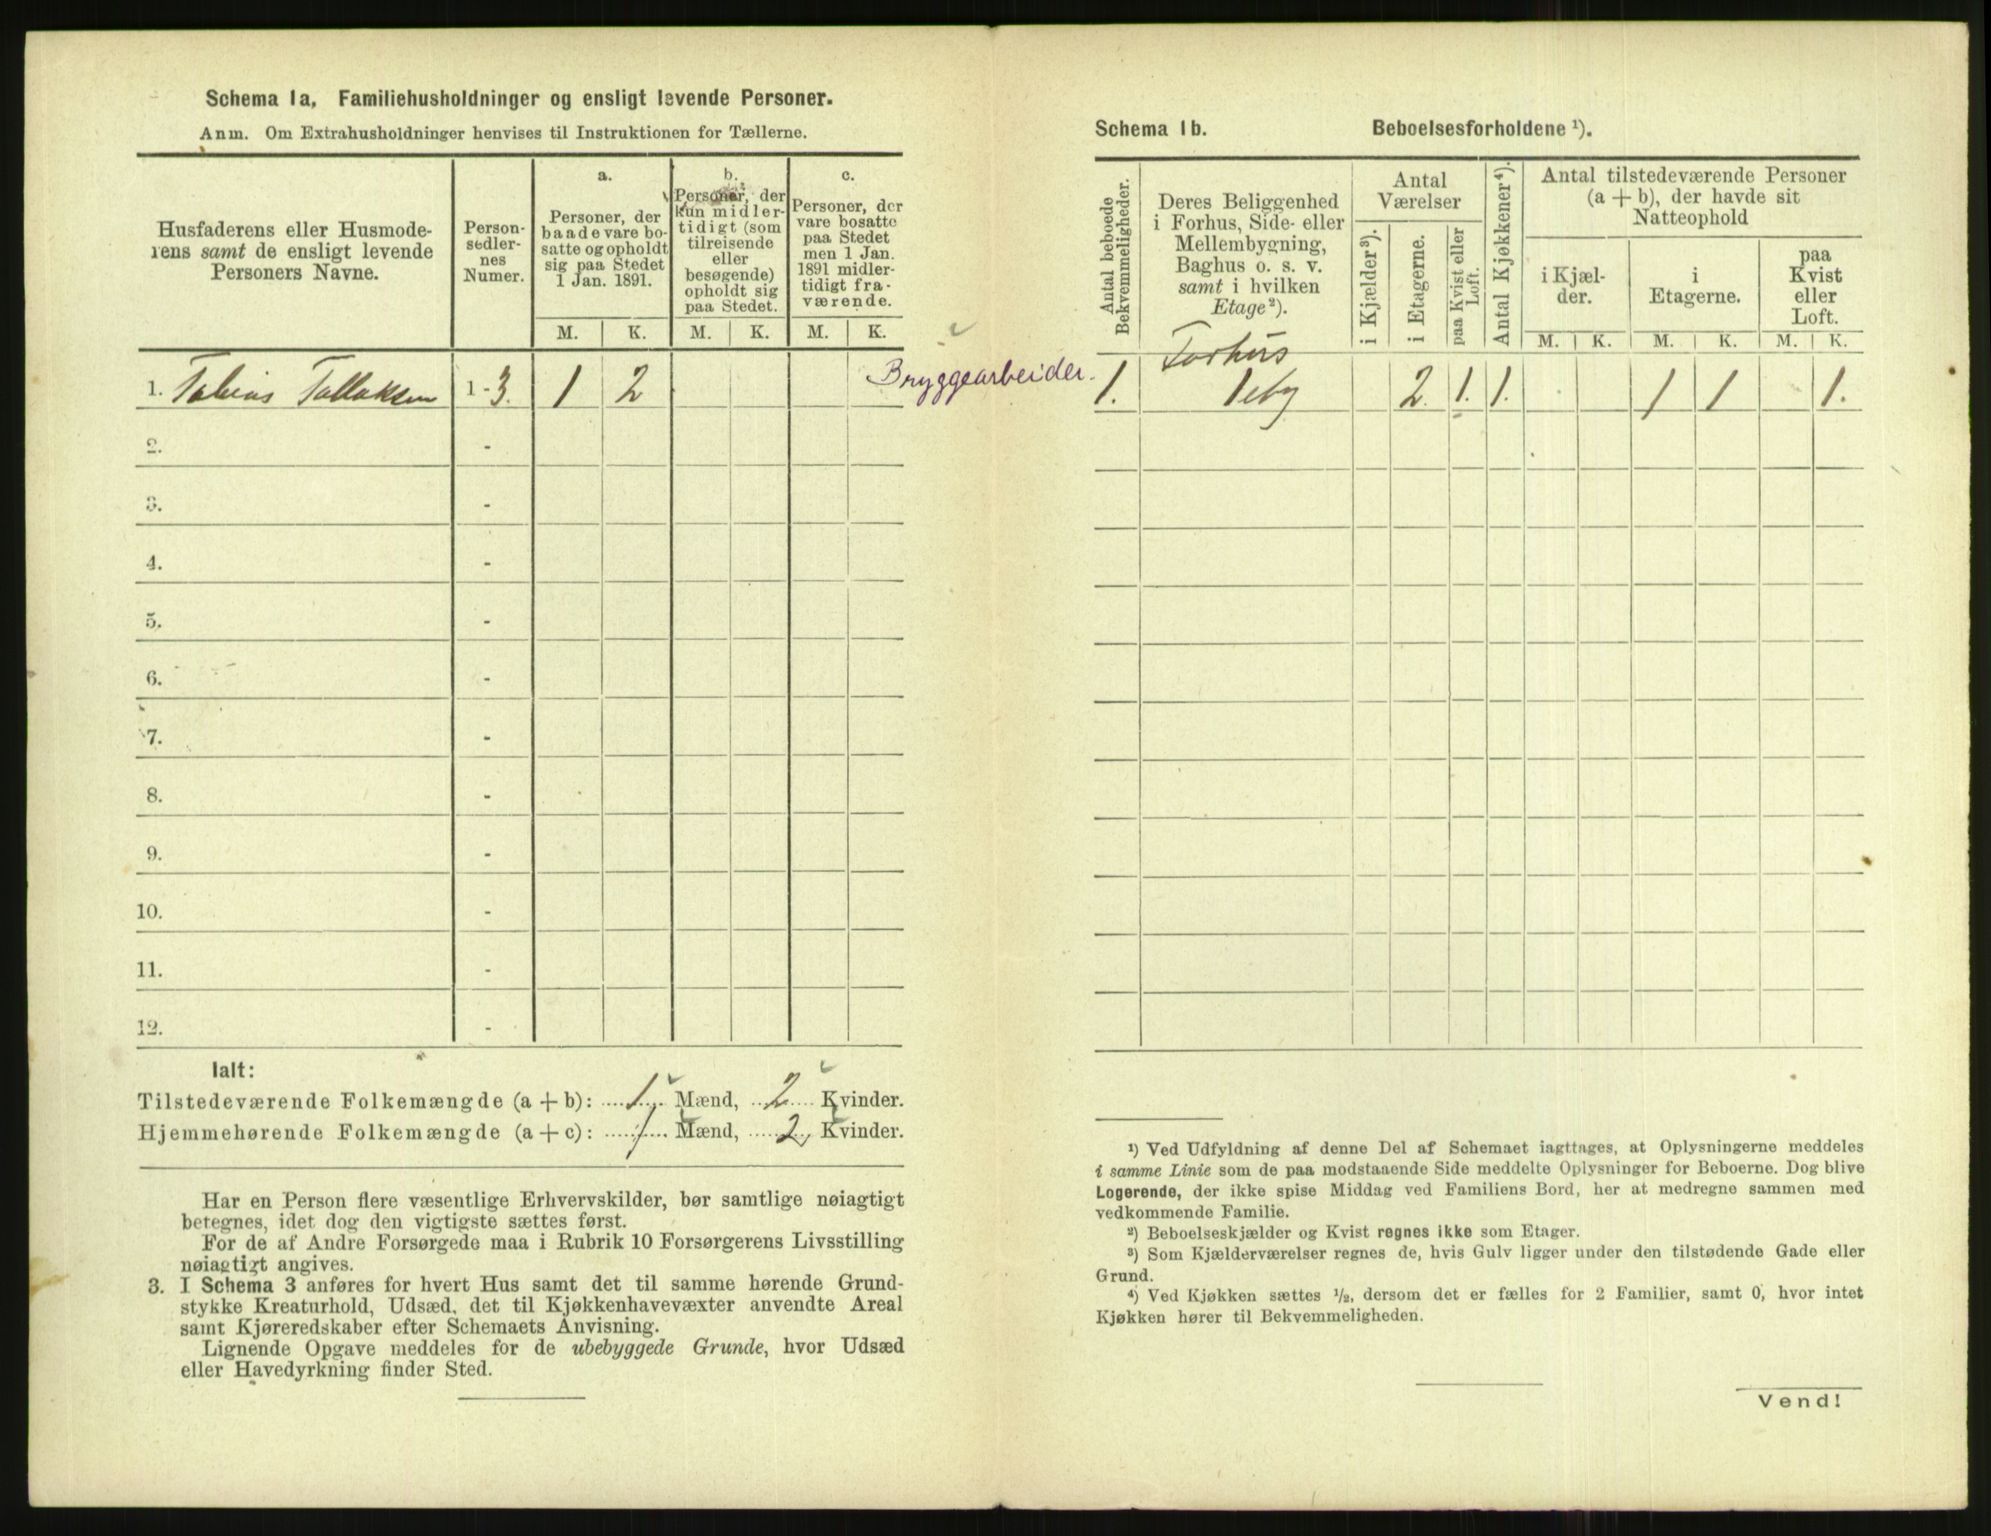 Schema 1a, Familiehusholdninger og ensligt levende Personer.
Anm. Om Extrahusholdninger henvises til Instruktionen for Tællerne.
Husfaderens eller Husmode-
rens samt de ensligt levende
Personers Navne.
Person-
sedler-
nes
Numer.
a.
Personer, der
baade vare bo-
satte og opholdt
sig paa Stedet
1 Jan. 1891.
M. K.
b.
Personer, der
kun midler-
tidigt (som
tilreisende
eller
besøgende)
opholdt sig
paa Stedet.
M. K.
c.
Personer, der
vare bosatte
paa Stedet
men 1 Jan.
1891 midler-
tidigt fra-
værende.
M. K.
1. Tobias Tallaksen 1 - 3. 1 2 Bryggearbeider.
2. -
3. -
4. -
5. -
6. -
7. -
8. -
9. -
10. -
11. -
12. -
Ialt:
Tilstedeværende Folkemængde (a + b): 1 Mænd, 2 Kvinder.
Hjemmehørende Folkemængde (a + c): 1 Mænd, 2 Kvinder.
Har en Person flere væsentlige Erhvervskilder, bør samtlige nøiagtigt
betegnes, idet dog den vigtigste sættes først.
For de af Andre Forsørgede maa i Rubrik 10 Forsørgerens Livsstilling
nøiagtigt angives.
3. I Schema 3 anføres for hvert Hus samt det til samme hørende Grund-
stykke Kreaturhold, Udsæd, det til Kjøkkenhavevæxter anvendte Areal
samt Kjøreredskaber efter Schemaets Anvisning.
Lignende Opgave meddeles for de ubebyggede Grunde, hvor Udsæd
eller Havedyrkning finder Sted.
Schema 1b. Beboelsesforholdene ¹).
Antal beboede
Bekvemmeligheder.
Deres Beliggenhed
i Forhus, Side- eller
Mellembygning,
Baghus o. s. v.
samt i hvilken
Etage²).
Antal
Værelser
i Kjælder³).
i Etagerne.
paa Kvist eller
Loft.
Antal Kjøkkener⁴).
Antal tilstedeværende Personer
(a + b), der havde sit
Natteophold
i Kjæl-
der.
i
Etagerne.
paa
Kvist
eller
Loft.
M. K. M. K. M. K.
Forhus
1. 2. 1. 1. 1 1 1.
¹) Ved Udfyldning af denne Del af Schemaet iagttages, at Oplysningerne meddeles
i samme Linie som de paa modstaaende Side meddelte Oplysninger for Beboerne. Dog blive
Logerende, der ikke spise Middag ved Familiens Bord, her at medregne sammen med
vedkommende Familie.
²) Beboelseskjælder og Kvist regnes ikke som Etager.
³) Som Kjælderværelser regnes de, hvis Gulv ligger under den tilstødende Gade eller
Grund.
⁴) Ved Kjøkken sættes ½, dersom det er fælles for 2 Familier, samt 0, hvor intet
Kjøkken hører til Bekvemmeligheden.
Vend!